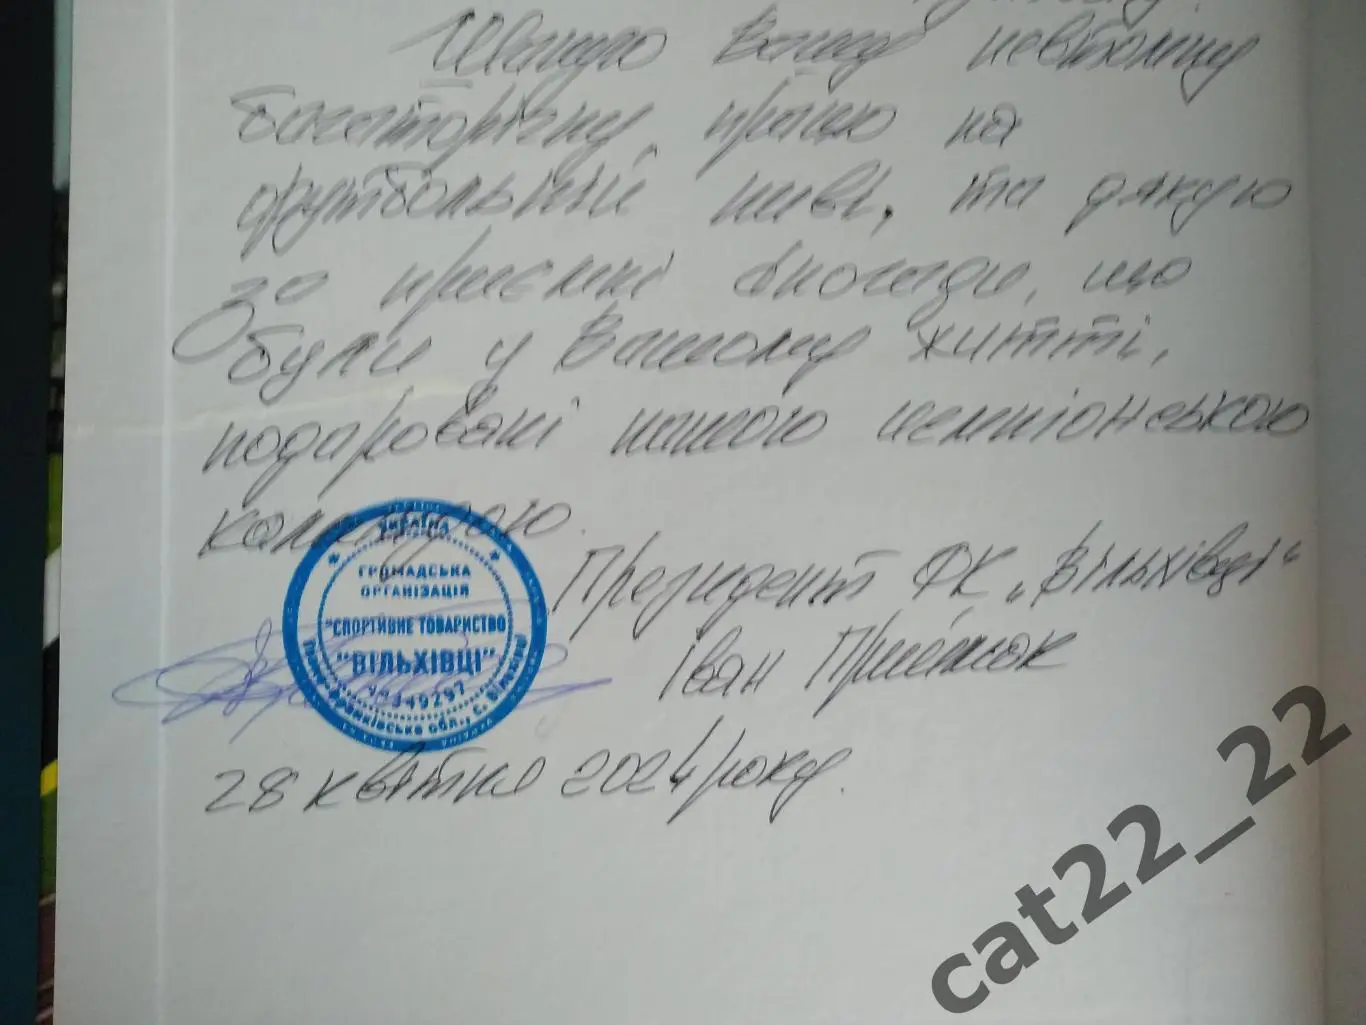 Шаную Вашу невтомну
багаторічну працю на
футбольній ниві, та дякую
за приємні спогади, що
були у Вашому житті,
подаровані нашою чемпіонською
командою.
Президент ФК „Вільхівці"
Іван Приймак
28 квітня 2024 року.
УКРАЇНА
ГРОМАДСЬКА
ОРГАНІЗАЦІЯ
"СПОРТИВНЕ ТОВАРИСТВО
"ВІЛЬХІВЦІ"
Івано-Франківська обл., с. Вільхівці
cat22_22